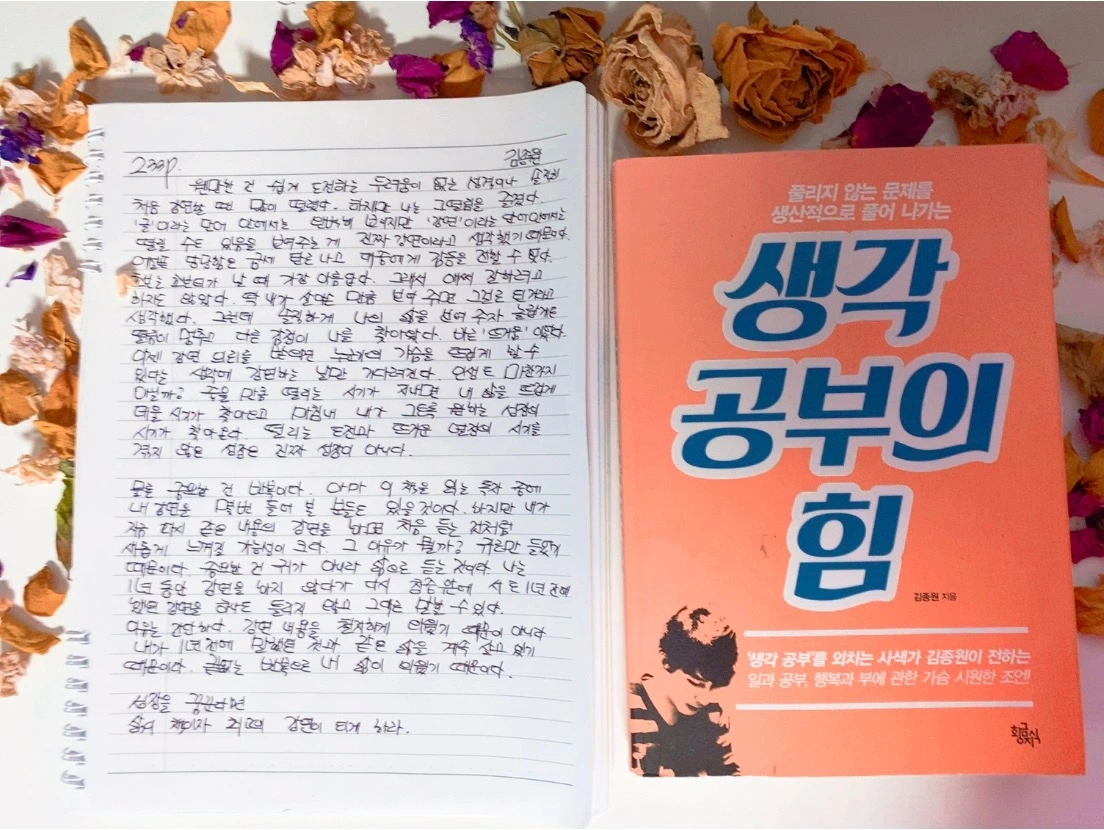 233p. 김종원
원만한 건 쉽게 도전하는 두려움이 없는 성격이나
처음 강연할 땐 많이 떨었다. 하지만 나는 그 떨림을 즐겼다.
'글'이라는 단어 안에서는 완벽해 보이지만 '강연'이라는 단어 안에서는
떨릴 수도 있음을 보여주는 게 진짜 강연이라고 생각했기 때문이다.
당당함은 금세 나고 대중에게 감동을 전할 수 없다.
초보는 초보티가 날 때 가장 아름답다. 그래서 애써 잘하려고
하지도 않았다. 딱 내가 살아온 만큼 보여 주면 그걸로 된 거라고
생각했다. 그런데 솔직하게 나의 삶을 보여 주자 놀랍게도
떨림이 멈추고 다른 감정이 나를 찾아왔다. 바로 '뜨거움'이었다.
이젠 강연 의뢰를 받으면 누군가의 가슴을 뜨겁게 할 수
있다는 생각에 강연하는 날만 기다려진다. 인생도 마찬가지
아닐까? 죽을 만큼 떨리는 시기가 지나면 내 삶을 뜨겁게
데울 시기가 찾아오고 마침내 내가 그토록 원하는 성장의
시기가 찾아온다. 떨리는 도전과 뜨거운 열정의 시기를
겪지 않은 성장은 진짜 성장이 아니다.
물론 중요한 건 반복이다. 아마 이 책을 읽는 독자 중에
내 강연을 몇 번 들어 본 분들도 있을 것이다. 하지만 내가
지금 다시 같은 내용의 강연을 하면 처음 듣는 것처럼
새롭게 느껴질 가능성이 크다. 그 이유가 뭘까? 귀로만 들었기
때문이다. 중요한 건 귀가 아니라 삶으로 듣는 것이다. 나는
1년 동안 강연을 하지 않다가 다시 청중 앞에 서도 1년 전에
했던 강연을 하나도 틀리지 않고 그대로 말할 수 있다.
이유는 간단하다. 강연 내용을 철저하게 외웠기 때문이 아니라
내가 1년 전에 말했던 것과 같은 삶을 계속 살고 있기
때문이다. 반복으로 내 삶이 외웠기 때문이다.
성장을 꿈꾼다면
삶이 책이자 최고의 강연이 되게 하라.
풀리지 않는 문제를
생산적으로 풀어 나가는
생각
공부의
힘
김종원 지음
'생각 공부'를 외치는 사색가 김종원이 전하는
일과 공부, 행복과 부에 관한 가슴 시원한 조언!
황금지식